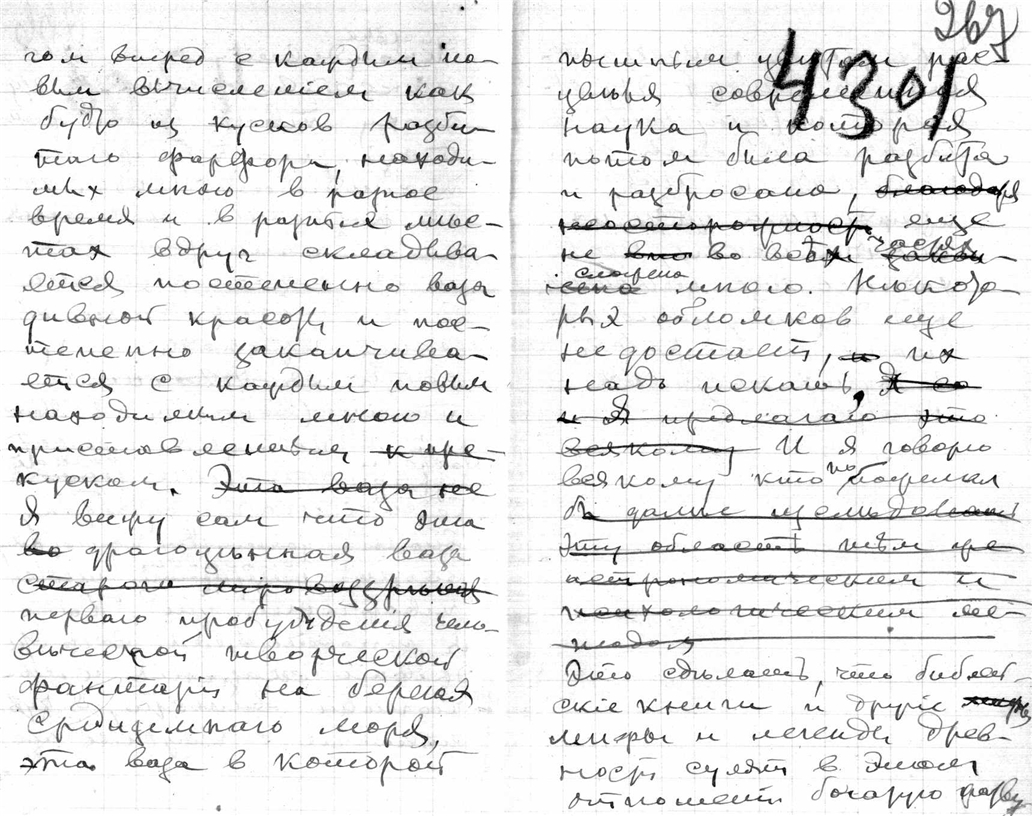 гом вперед с каждым но-
вым вычислением как
будто из кусков разби-
таго фарфора, находи-
мых мною в разное
время и в разных мѣс-
тах вдруг складыва-
ется постепенно ваза
дивной красоты и пос-
тепенно заканчива-
ется с каждым новым
находимым мною и
приставленным к пре-
куском. Эта ваза не
Я вижу сам что эта
во драгоцѣнная ваза
стараго міровоззрѣнія
перваго пробужденія чело-
вѣческой творческой
фантазіи на берегах
Средиземнаго моря,
эта ваза в которой
267
4301
пышным цвѣтом рас-
цвѣла современная
наука и которая
потом была разбита
и разбросана, благодаря
неосторожности еще
не во всѣх частях
сложена мною. Некото-
рых обломков еще
недостает, и их
надо искать,
и Я предлагаю это
всякому И я говорю
всякому кто пожелал
бы дальше изслѣдовать
эту область тѣм же
астрономическим и
психологическим ме-
тодом
Это сдѣлать, что библей-
скіе книги и другіе
мифы и легенды древ-
ности сулят в этом
отношеніи богатую жатву